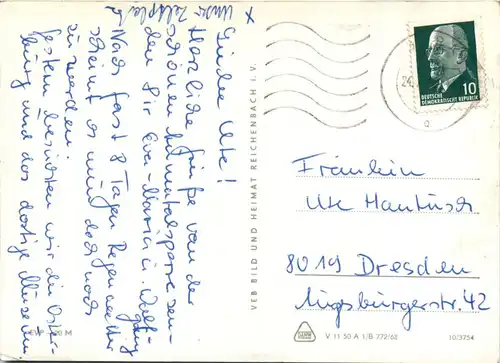 x unser Zeltplatz
Liebe Ute!
Herzliche Grüße von der
schönen Inmitalsperre sen-
den Dir Eva-Maria u. Wolfgang
Nach fast 8 Tagen Regenwetter
scheint es nun doch noch
zu werden.
Gestern besuchten wir die Oster-
burg und das dortige Museum
EVP 20 M
VEB BILD UND HEIMAT REICHENBACH I. V.
24.
DEUTSCHE
DEMOKRATISCHE REPUBLIK
10
Fräulein
Ute Hantusch
8019 Dresden
Augsburgerstr. 42
V 11 50 A 1/B 772/68
10/3754